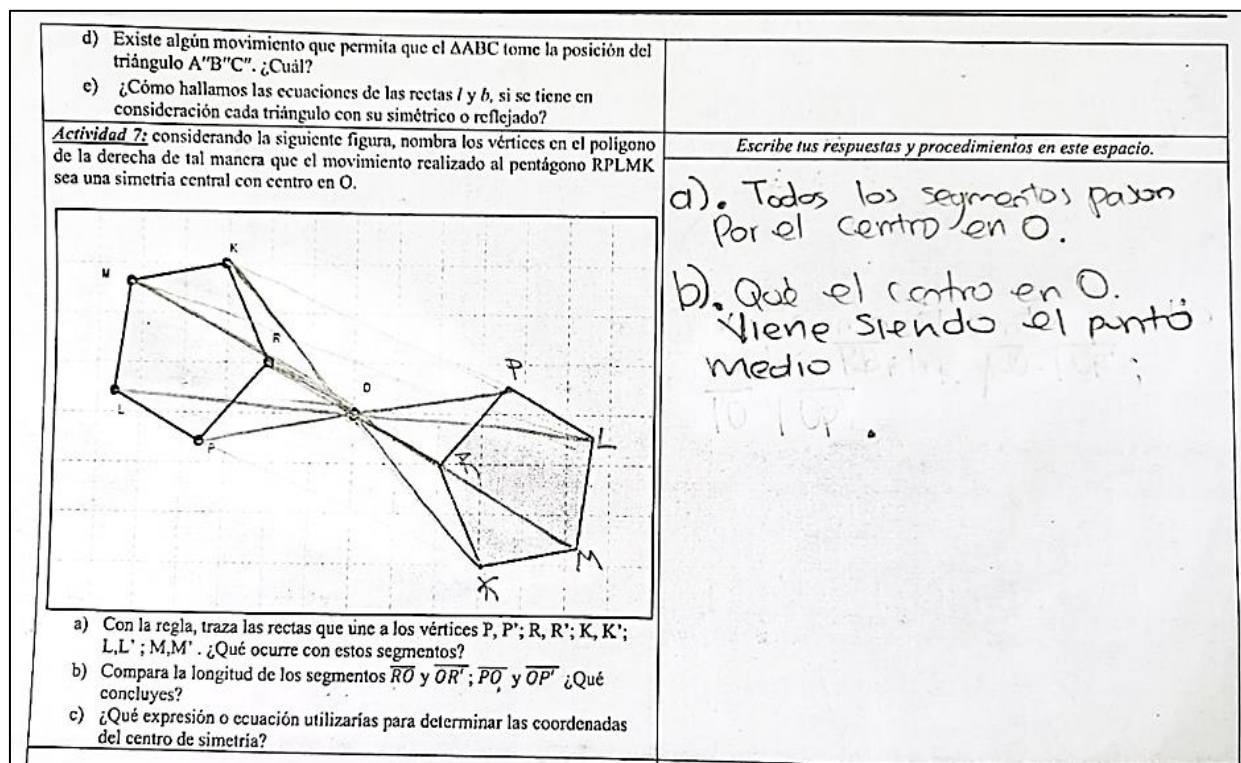 d) Existe algún movimiento que permita que el ΔABC tome la posición del
triángulo A"B"C". ¿Cuál?
e) ¿Cómo hallamos las ecuaciones de las rectas l y b, si se tiene en
consideración cada triángulo con su simétrico o reflejado?
Actividad 7: considerando la siguiente figura, nombra los vértices en el polígono
de la derecha de tal manera que el movimiento realizado al pentágono RPLMK
sea una simetría central con centro en O.
K
M
R
O
L
P
P
L
R
M
K
a) Con la regla, traza las rectas que une a los vértices P, P'; R, R'; K, K';
L,L' ; M,M' . ¿Qué ocurre con estos segmentos?
b) Compara la longitud de los segmentos RO y OR' ; PO y OP' ¿Qué
concluyes?
c) ¿Qué expresión o ecuación utilizarías para determinar las coordenadas
del centro de simetría?
Escribe tus respuestas y procedimientos en este espacio.
a). Todos los segmentos pason
Por el centro en O.
b). Què el centro en O.
Viene siendo el punto
medio